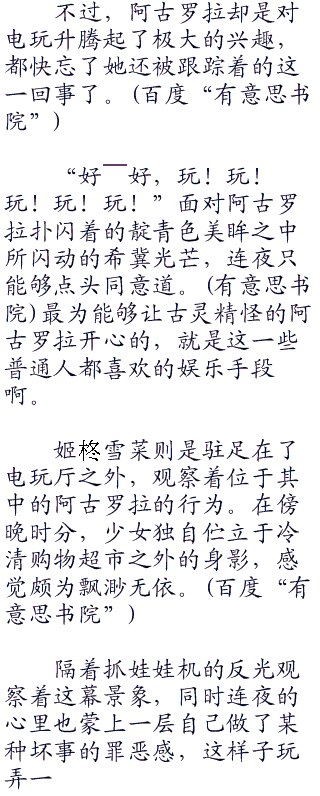 不过，阿古罗拉却是对
电玩升腾起了极大的兴趣，
都快忘了她还被跟踪着的这
一回事了。(百度“有意思书
院”)
“好——好，玩！玩！
玩！玩！玩！”面对阿古罗
拉扑闪着的靛青色美眸之中
所闪动的希冀光芒，连夜只
能够点头同意道。(有意思书
院)最为能够让古灵精怪的阿
古罗拉开心的，就是这一些
普通人都喜欢的娱乐手段
啊。
姬柊雪菜则是驻足在了
电玩厅之外，观察着位于其
中的阿古罗拉的行为。在傍
晚时分，少女独自伫立于冷
清购物超市之外的身影，感
觉颇为飘渺无依。(百度“有
意思书院”)
隔着抓娃娃机的反光观
察着这幕景象，同时连夜的
心里也蒙上一层自己做了某
种坏事的罪恶感，这样子玩
弄一